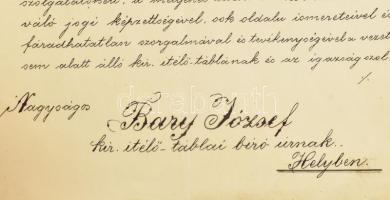 váló jogi képzettségével, sok oldalu ismereteivel és
fáradhatatlan szorgalmával és tevékenységével a vezeté
sem alatt álló kir. itélő-táblának és az igazságszol
./.
Nagyságos
Bary József
kir. itélő-táblai biró úrnak.
Helyben.